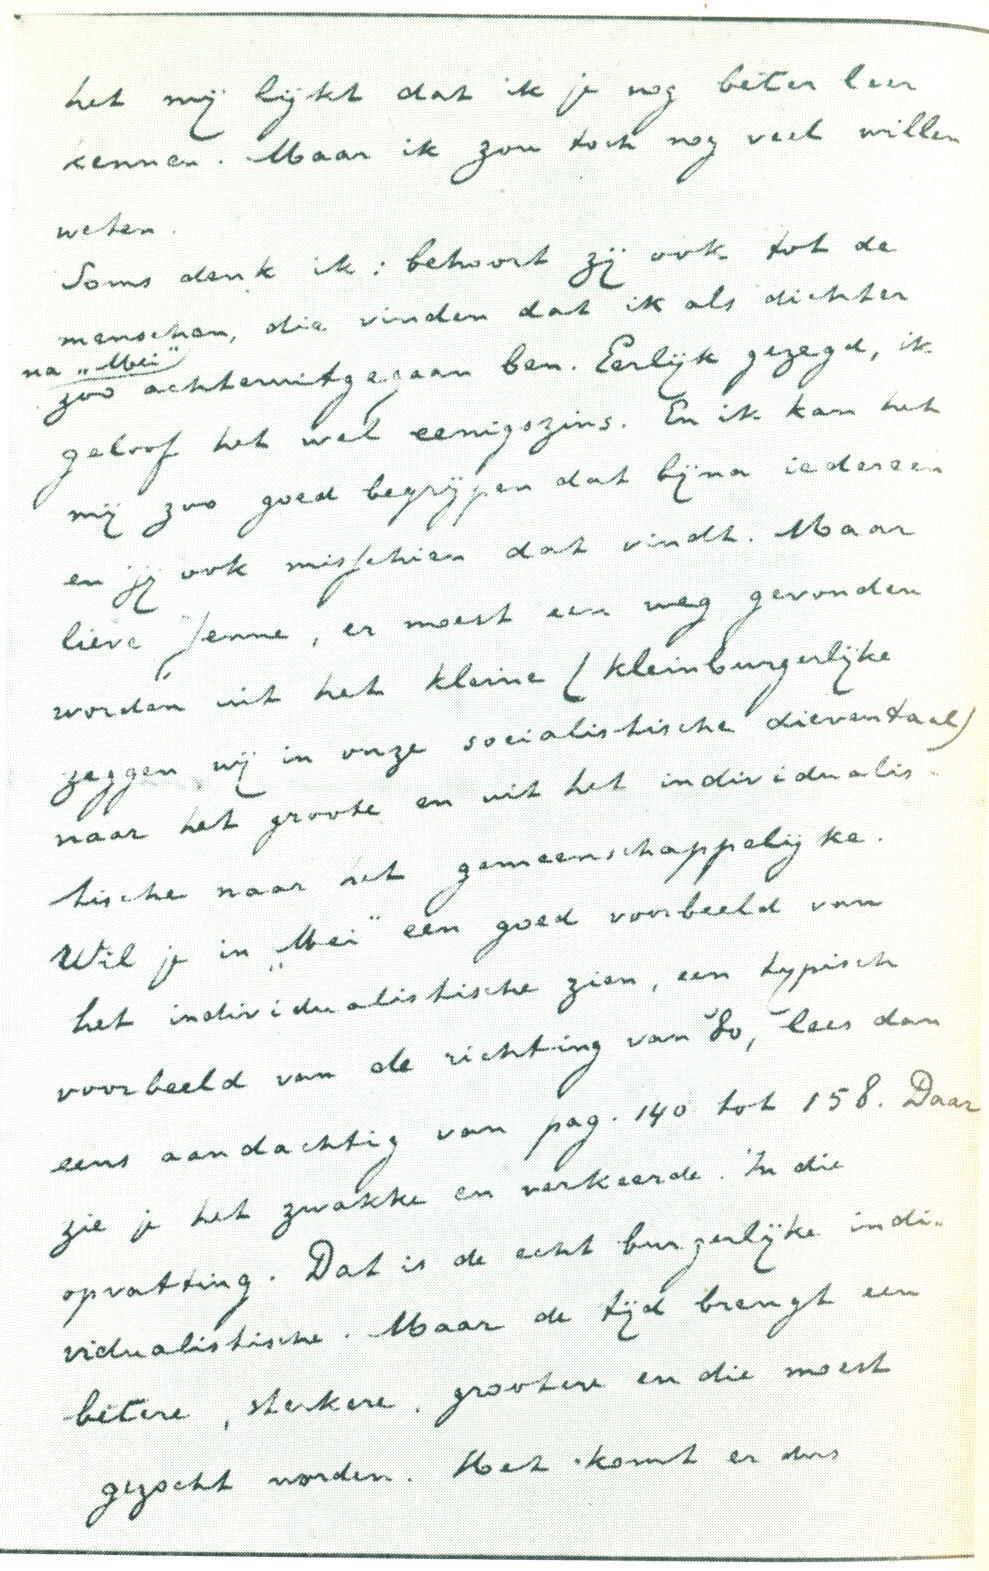 het mij lijkt dat ik je nog béter leer
kennen. Maar ik zou toch nog veel willen
weten.
Soms denk ik: behoort zij ook tot de
menschen, die vinden dat ik als dichter
na „Mei"
zoo achteruitgegaan ben. Eerlijk gezegd, ik
geloof het wel eenigszins. En ik kan het
mij zoo goed begrijpen dat bijna iedereen
en jij ook misschien dat vindt. Maar
lieve Jenne, er moest een weg gevonden
worden uit het kleine (kleinburgerlijke
zeggen wij in onze socialistische dieventaal)
naar het groote en uit het individualis-
tische naar het gemeenschappelijke.
Wil je in „Mei" een goed voorbeeld van
het individualistische zien, een typisch
voorbeeld van de richting van '80, lees dan
eens aandachtig van pag. 140 tot 158. Daar
zie je het zwakke en verkeerde. In die
opvatting. Dat is de echt burgerlijke indi-
vidualistische. Maar de tijd brengt een
bétere, sterkere, grootere en die moest
gezocht worden. Het komt er dus